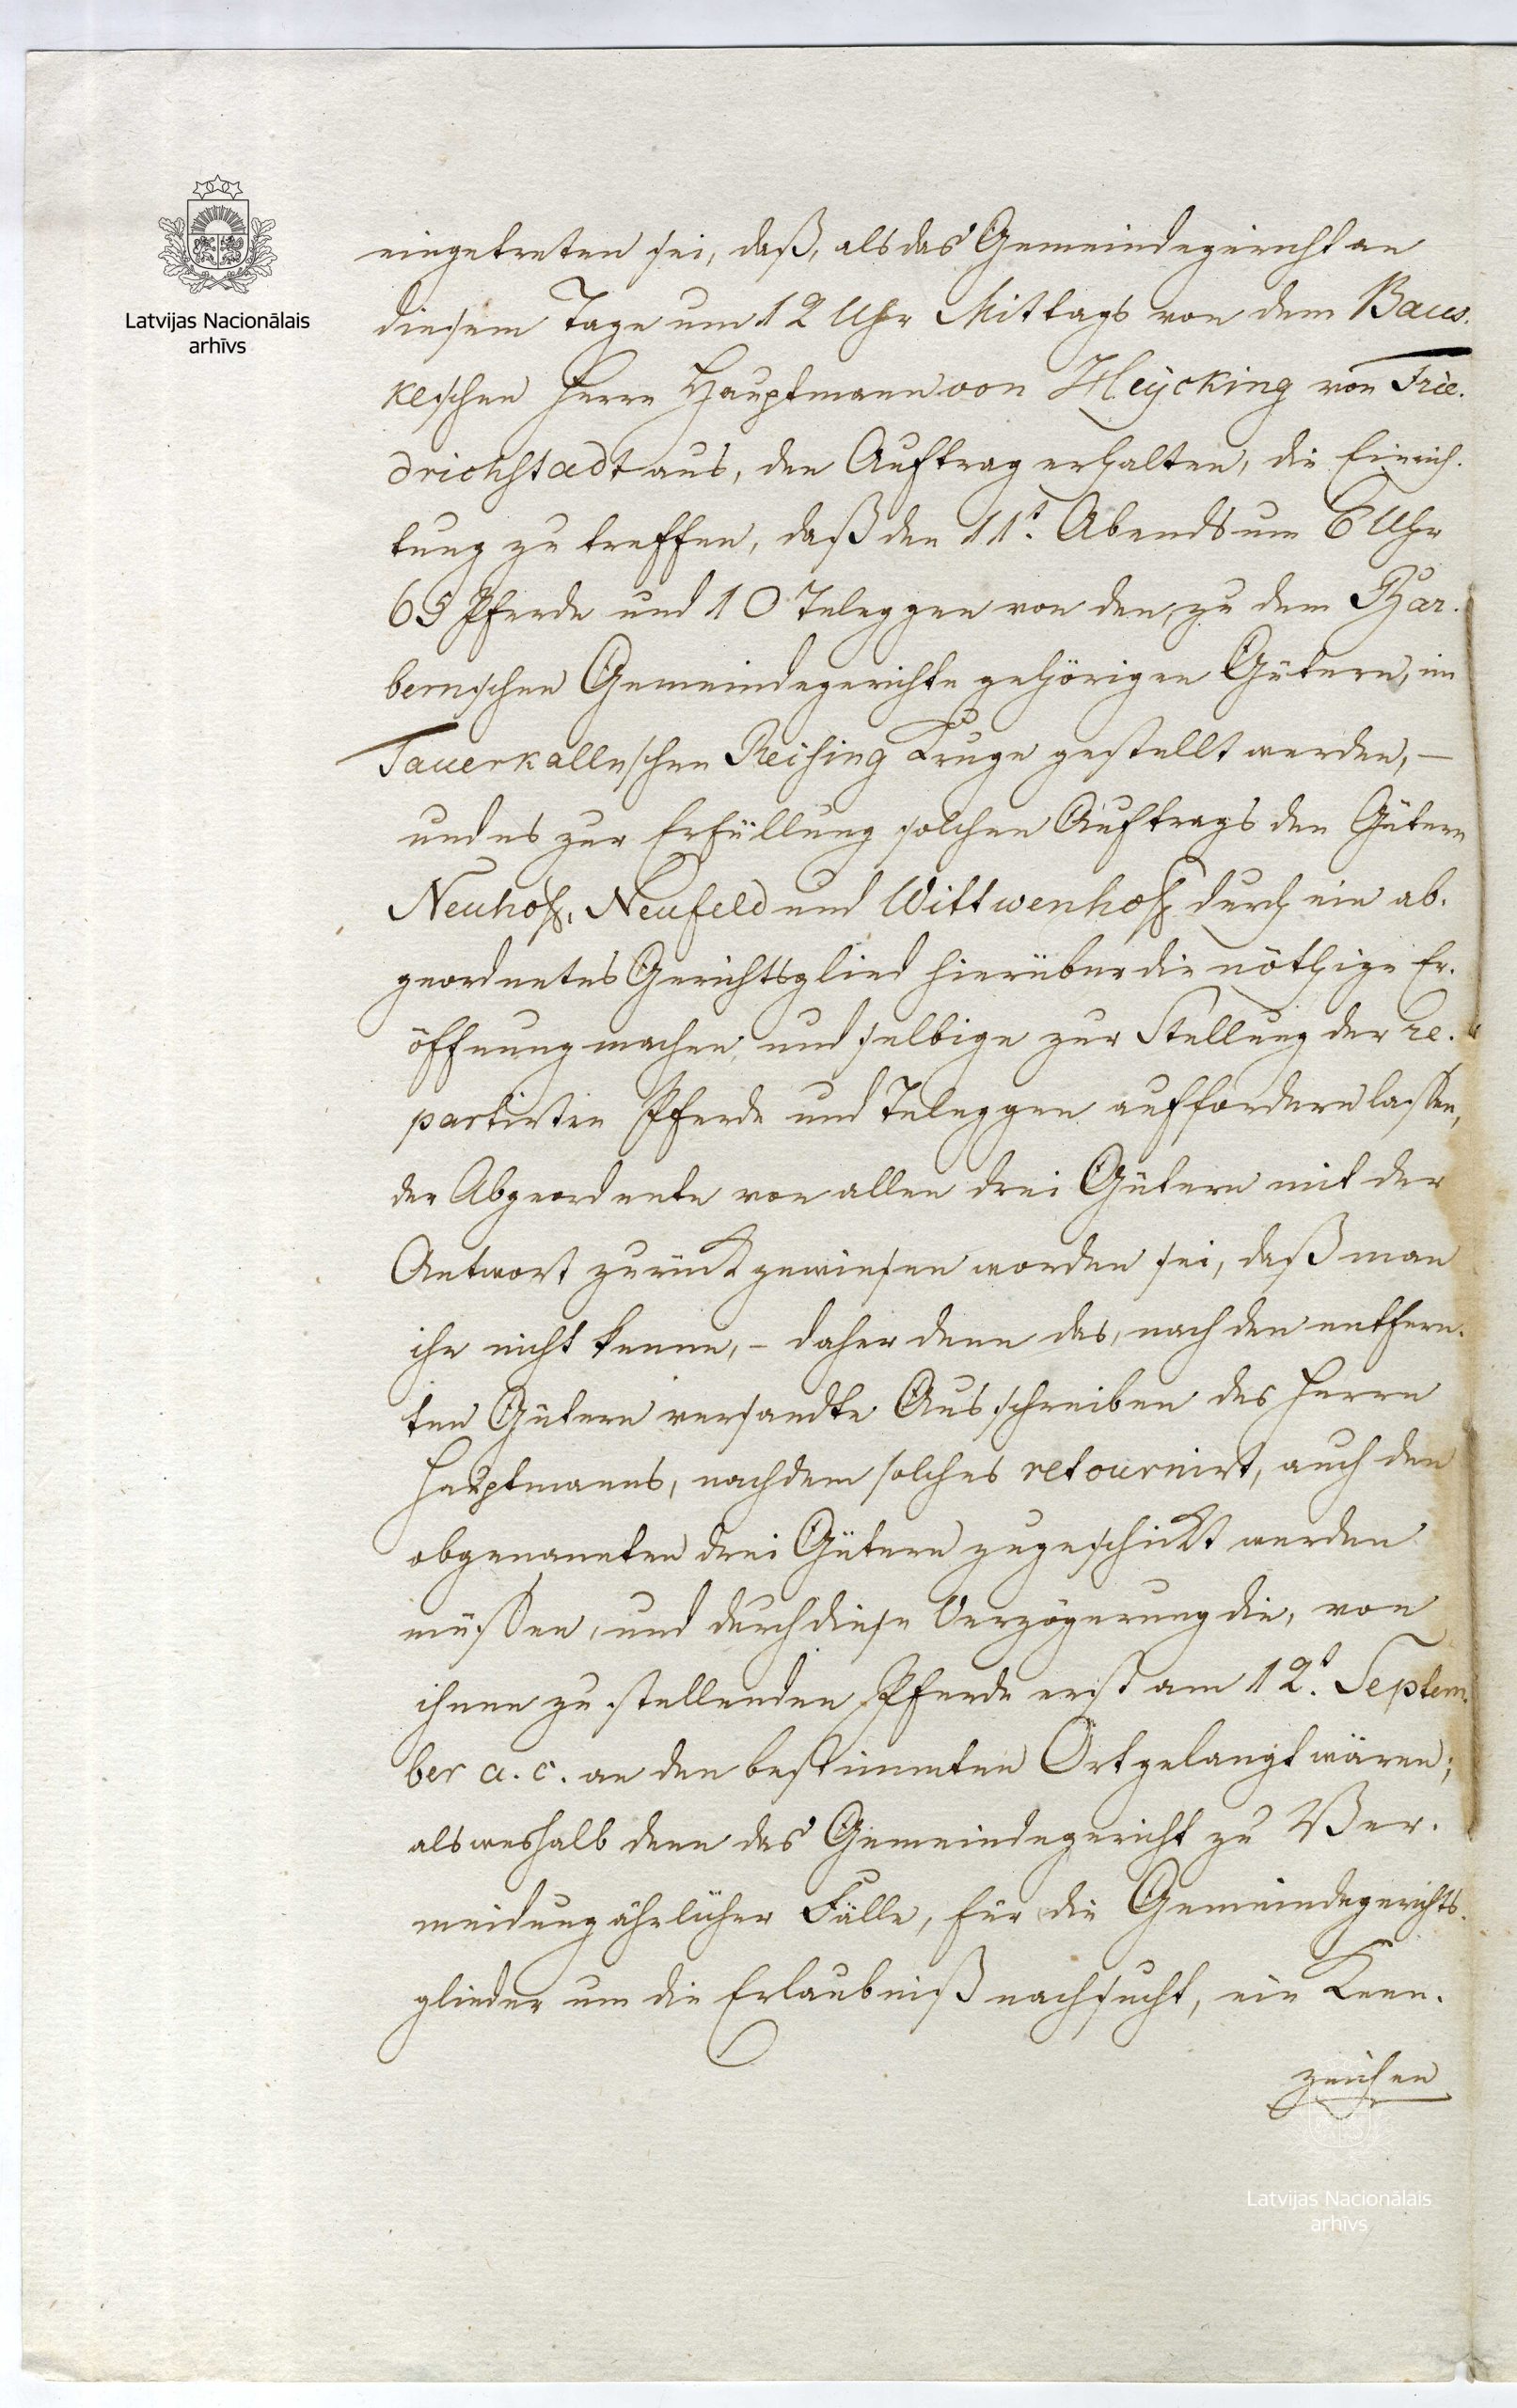 Latvijas Nacionālais
arhīvs
eingetreten sei, daß, als das Gemeindegericht an
diesem Tage um 12 Uhr Mittags von dem Baus-
keschen Herrn Hauptmann von Heycking von Frie-
drichstadt aus, den Auftrag erhalten, die Einrich-
tung zu treffen, daß den 11t. Abends um 6 Uhr
65 Pferde und 10 Teleggen von den, zu dem Bar-
bernschen Gemeindegerichte gehörigen Gütern, im
Tauerkallnschen Reising Kruge gestellt werden, –
und es zur Erfüllung solchen Auftrags den Gütern
Neuhof, Neufeld und Wittwenhof durch ein ab-
geordnetes Gerichtsglied hierüber die nöthige Er-
öffnung machen und selbige zur Stellung der re-
partirten Pferde und Teleggen auffordern lassen,
der Abgeordnete von allen drei Gütern mit der
Antwort zurückgewiesen worden sei, daß man
ihn nicht kenne, – daher denn das, nach den entfern-
ten Gütern versandte Ausschreiben des Herrn
Hauptmanns, nachdem solches retournirt, auch den
obgenannten drei Gütern zugeschickt werden
müssen, und durch diese Verzögerung die, von
ihnen zu stellenden Pferde erst am 12t. Septem-
ber a. c. an den bestimmten Ort gelangt wären;
als weshalb denn das Gemeindegericht zu Ver-
meidung ähnlicher Fälle, für die Gemeindegerichts-
glieder um die Erlaubniß nachsucht, ein Kenn-
zeichen
Latvijas Nacionālais
arhīvs